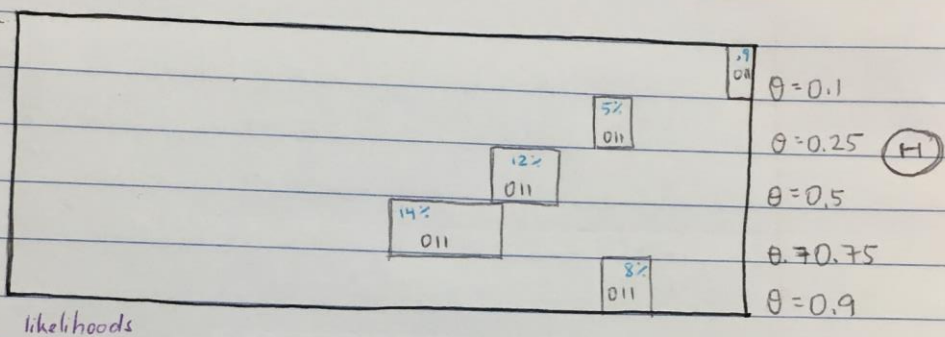 .9
011
θ=0.1
5%
011
θ=0.25
H
12%
011
θ=0.5
14%
011
θ.=0.75
8%
011
θ=0.9
likelihoods